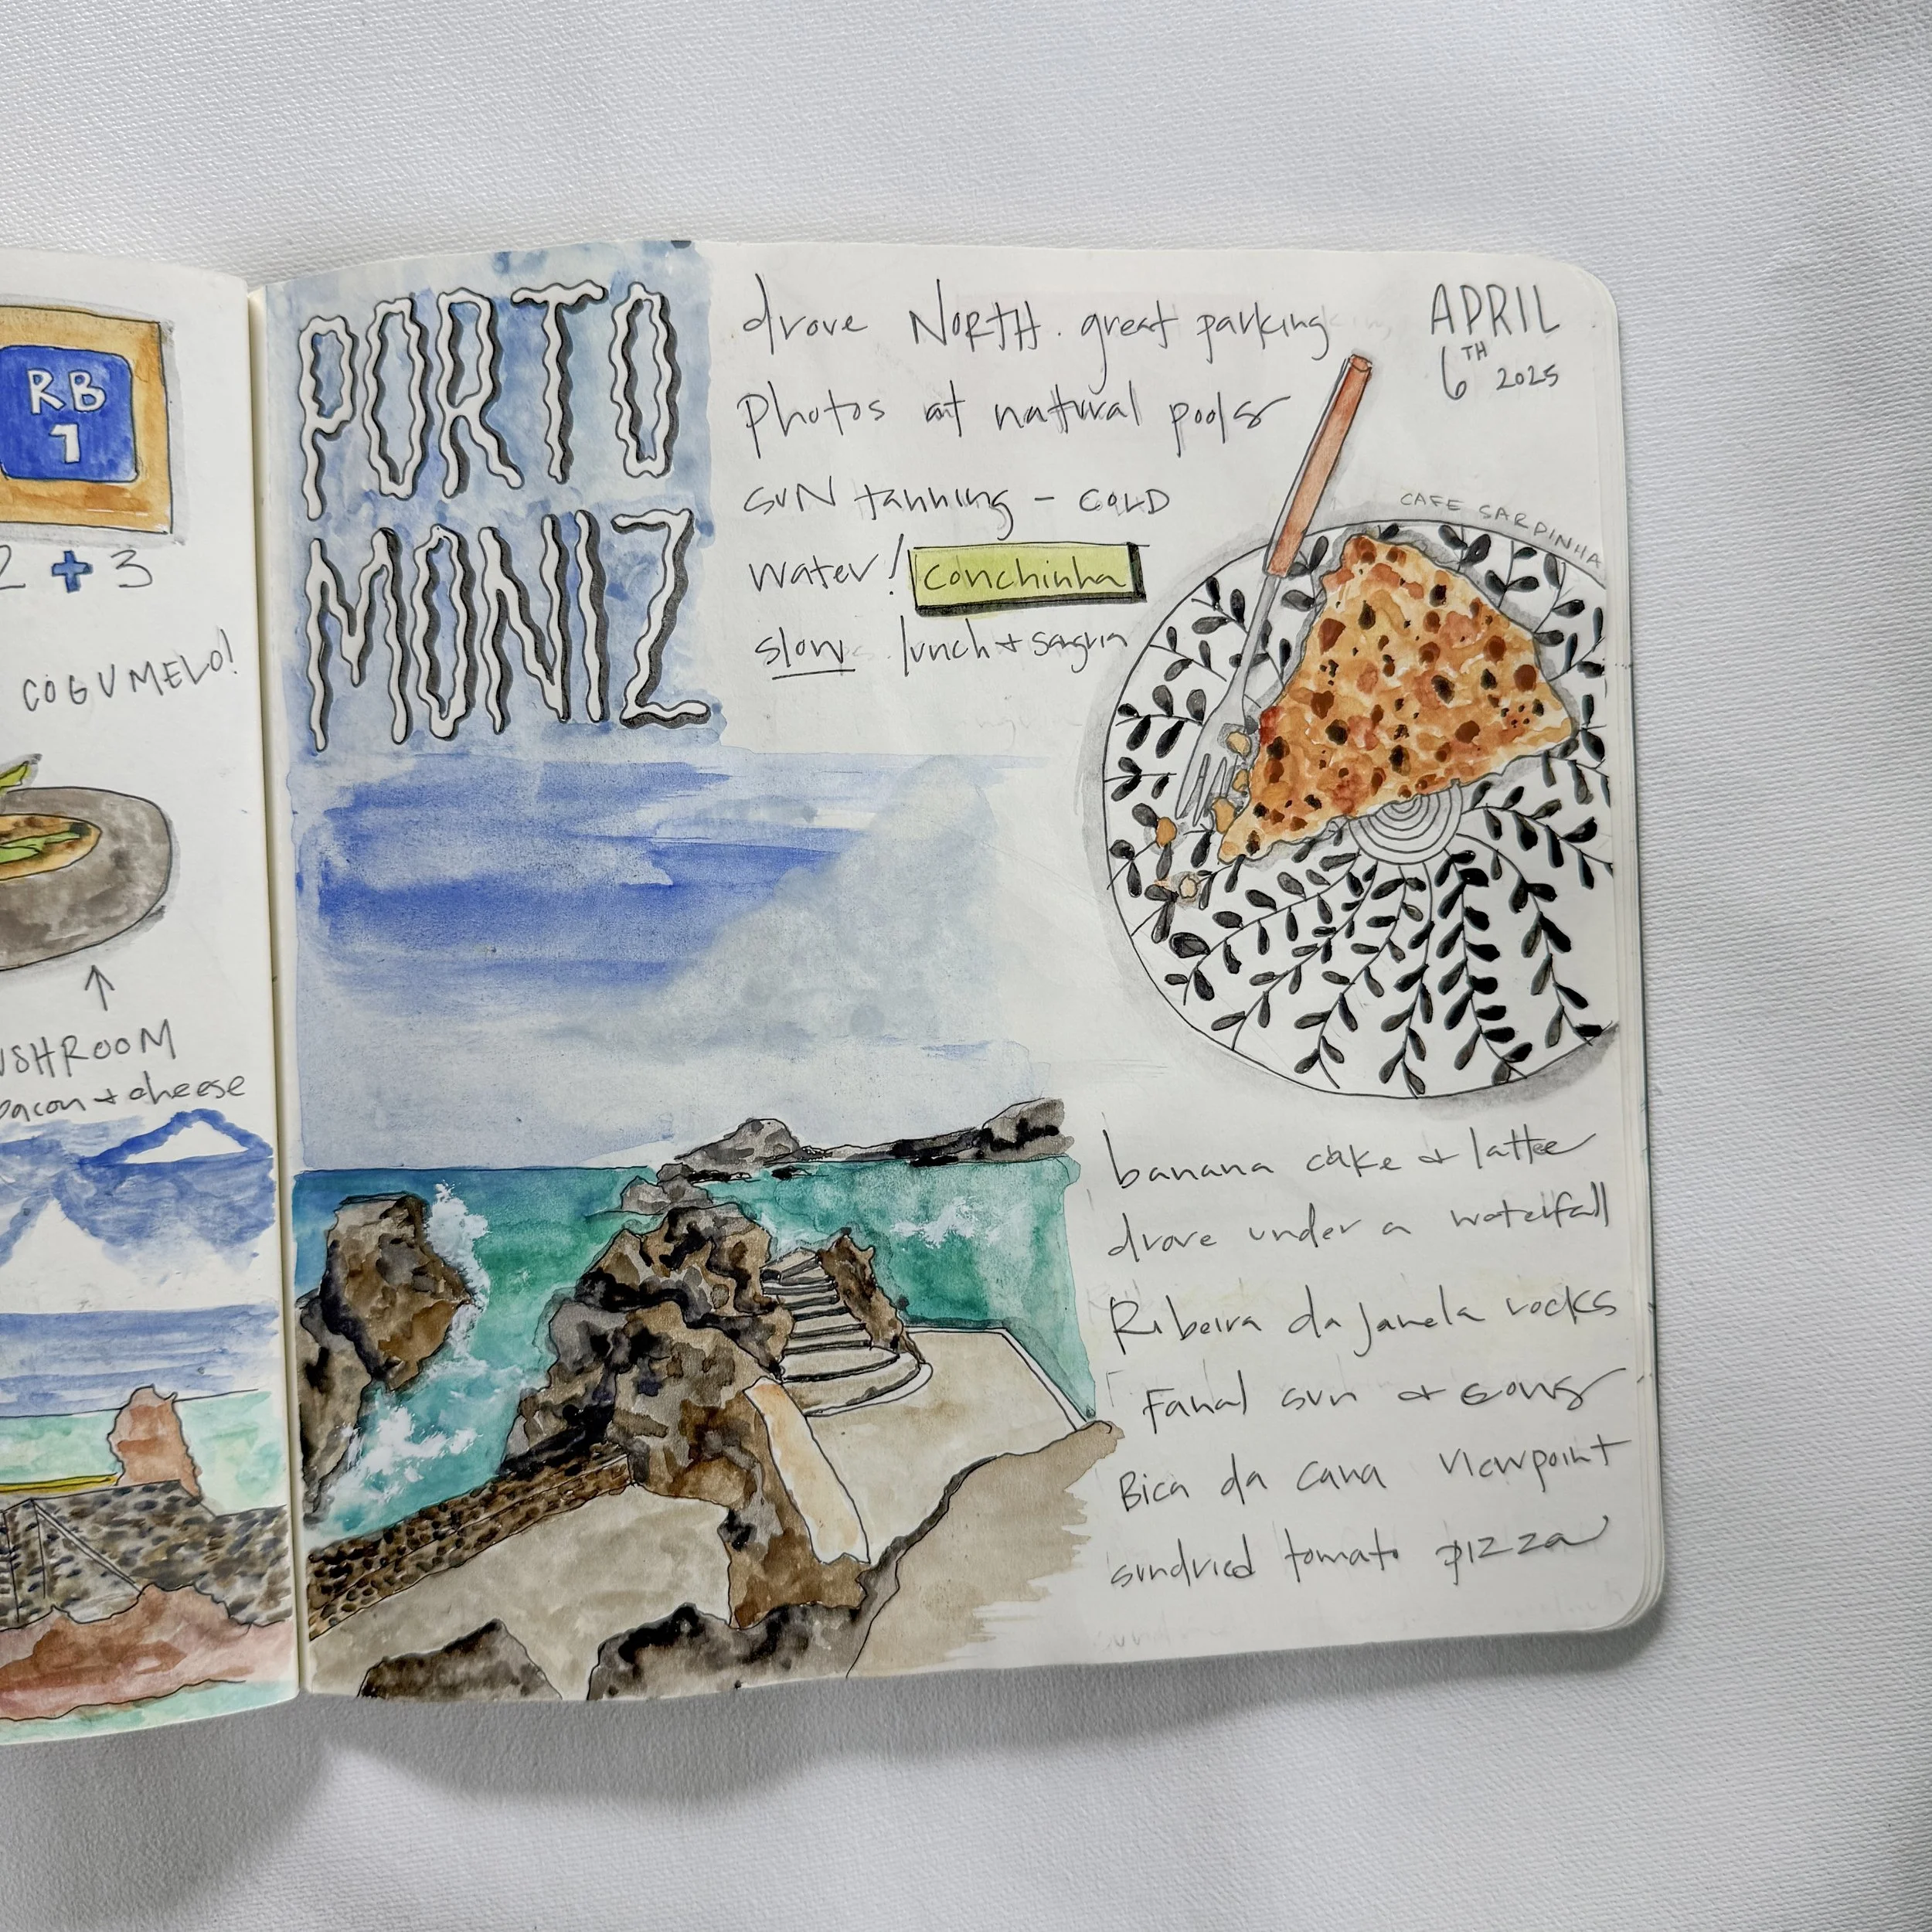 RB
1
2 + 3
COGUMELO!
USHROOM
bacon + cheese
PORTO
MONIZ
drove NORTH. great parking
Photos at natural pools
SUN tanning - COLD
water! conchinha
slow lunch + sangria
APRIL
6TH 2025
CAFE SARDINHA
banana cake + lattee
drove under a waterfall
Ribeira da Janela rocks
Fanal sun +
Bica da cana viewpoint
sundried tomato pizza